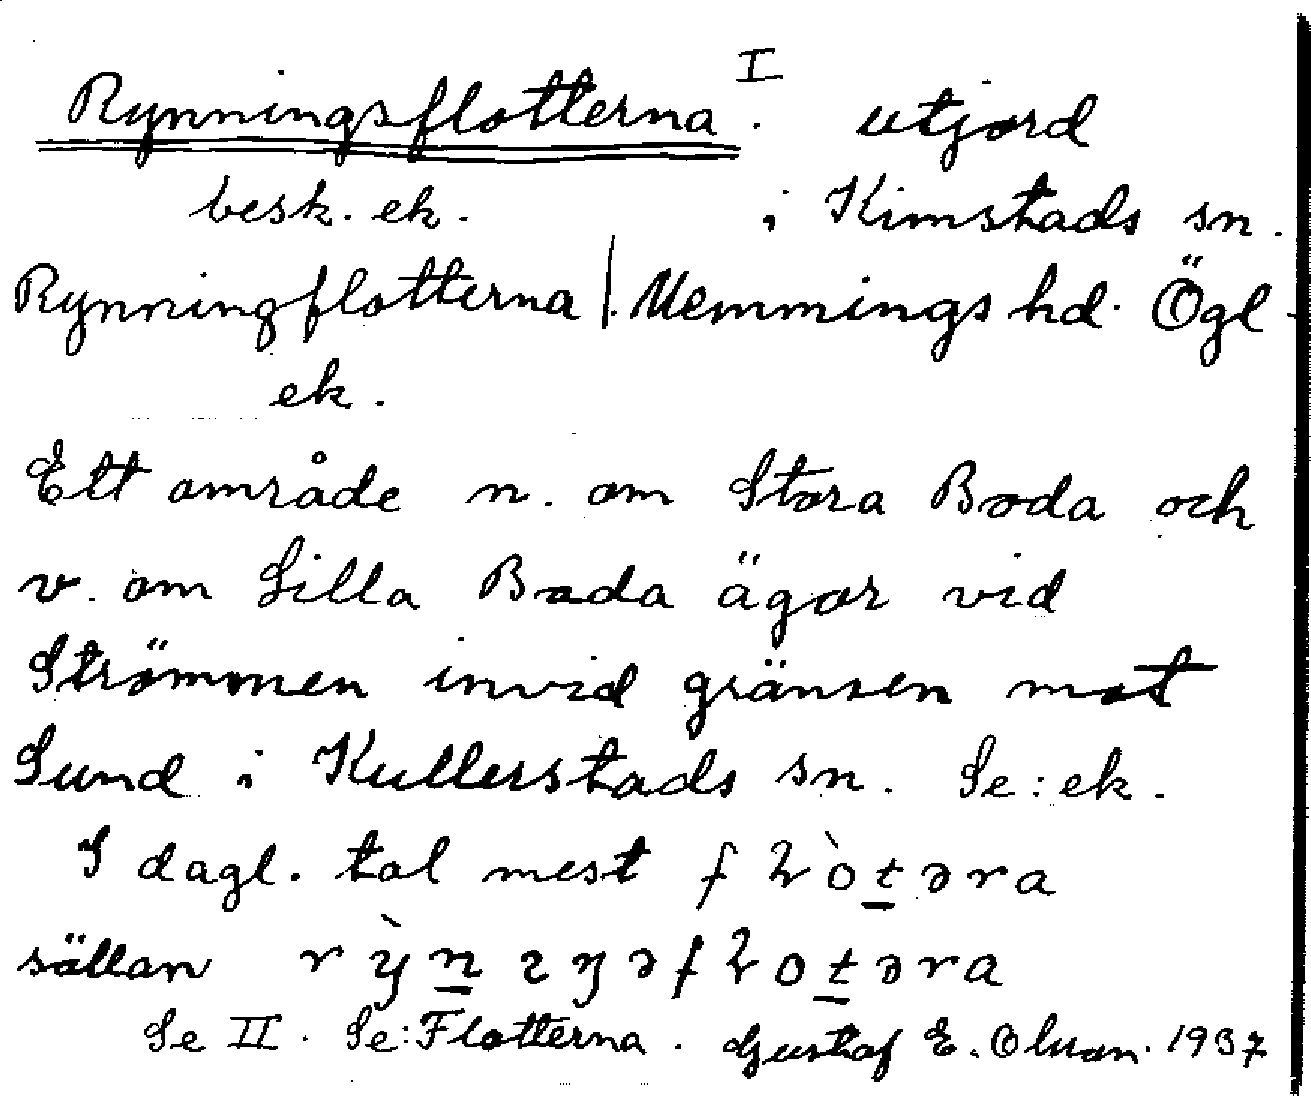 Rynningsflotterna I. utjord
besk. ek. i Kimstads sn.
Rynningflotterna | Memmings hd. Ögl.
ek.
Ett område n. om Stora Boda och
v. om Lilla Boda ägor vid
Strömmen invid gränsen mot
Sund i Kullerstads sn. Se: ek.
I dagl. tal mest
sällan
Se II. Se: Flotterna. Gustaf E. Olsson. 1937